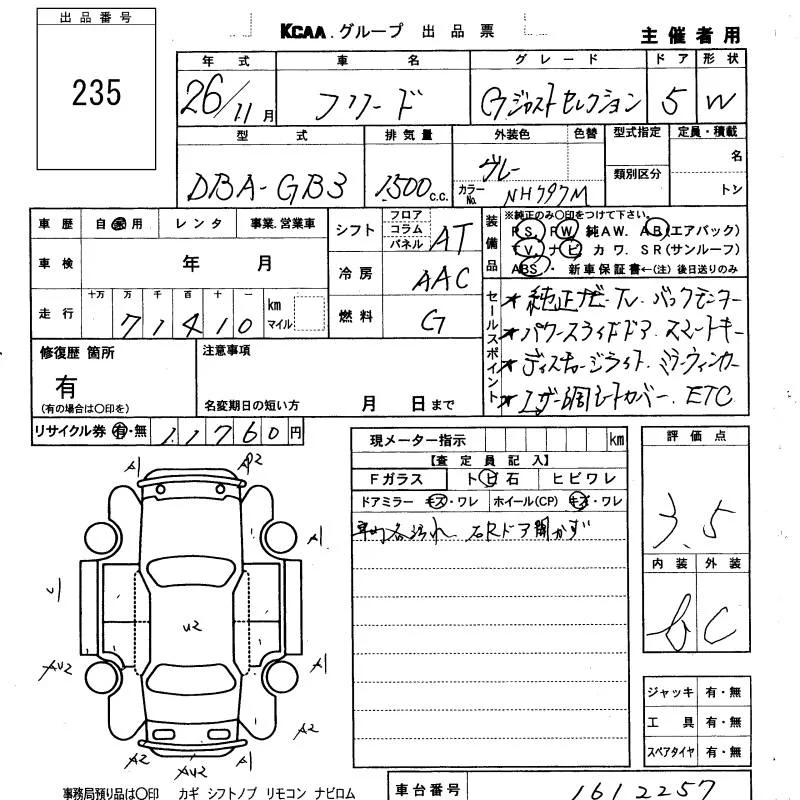 出品番号
235
KCAA.グループ 出品票
主催者用
年式 車名 グレード ドア 形状
26/11月 フリード Gジャストセレクション 5 W
型式 排気量 外装色 色替 型式指定 定員・積載
DBA-GB3 1500c.c. グレー カラーNo. NH797M 類別区分 名 トン
車歴 自家用 レンタ 事業.営業車
車検 年 月
走行 十万 万 千 百 十 一 km マイル
71410
シフト フロア コラム パネル AT
冷房 AAC
燃料 G
装備品
※純正のみ〇印をつけて下さい。
PS. PW 純AW. AB(エアバック)
TV. ナビ カワ. SR(サンルーフ)
ABS・新車保証書←(注)後日送りのみ
セールスポイント
★純正ナビ・TV. バックモニター
★パワースライドドア. スマートキー
★ディスチャージライト. ミラーウィンカー
★エアー調シートカバー. ETC
修復歴 箇所
有
(有の場合は〇印を)
注意事項
名変期日の短い方 月 日まで
リサイクル券 有・無 11760円
現メーター指示 km
【査定員記入】
Fガラス トビ石 ヒビワレ
ドアミラー キズ・ワレ ホイール(CP) キズ・ワレ
車内 汚れ 右Rドア開かず
評価点
3.5
内装 外装
b C
ジャッキ 有・無
工具 有・無
スペアタイヤ 有・無
A1 A2
A1
U1
U2
AU2 A1
A2
A2 AU2 A1
事務局預り品は〇印 カギ シフトノブ リモコン ナビロム
車台番号 1612257